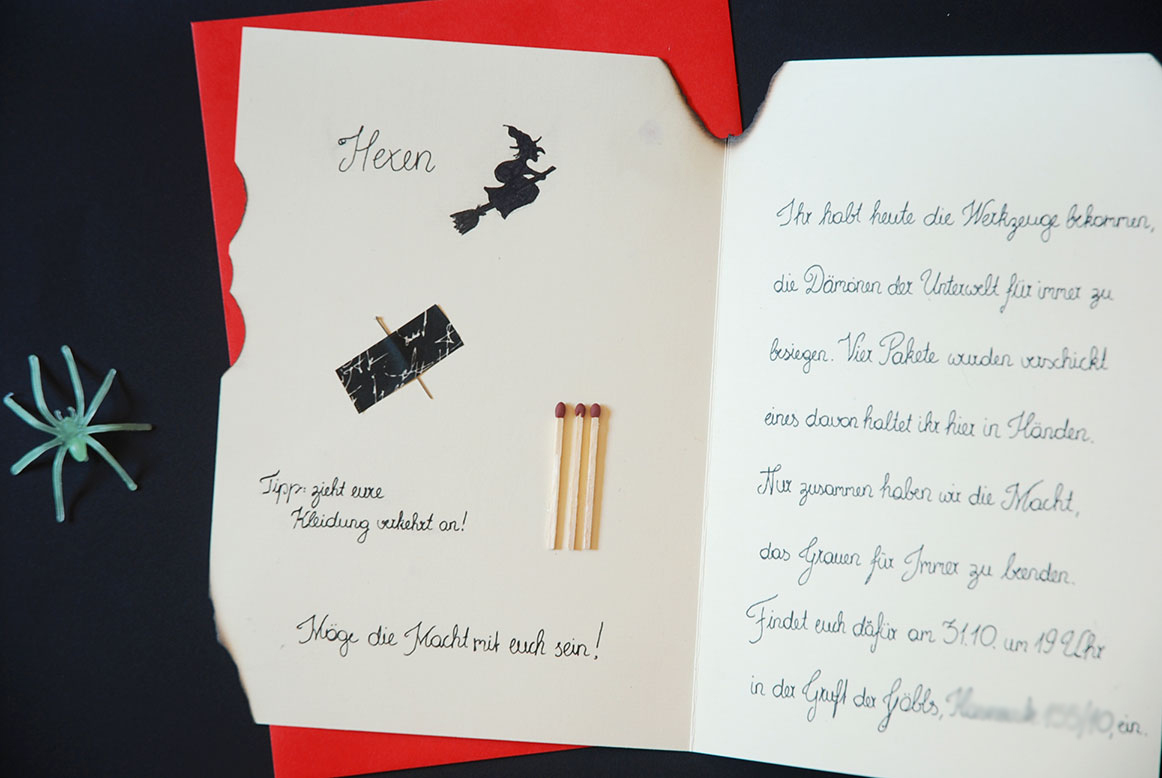 Hexen
Tipp: zieht eure
Kleidung verkehrt an!
Möge die Macht mit euch sein!
Ihr habt heute die Werkzeuge bekommen,
die Dämonen der Unterwelt für immer zu
besiegen. Vier Pakete wurden verschickt
eines davon haltet ihr hier in Händen.
Nur zusammen haben wir die Macht,
das Grauen für Immer zu beenden.
Findet euch dafür am 31.10. um 19 Uhr
in der Gruft der Göbls, ein.